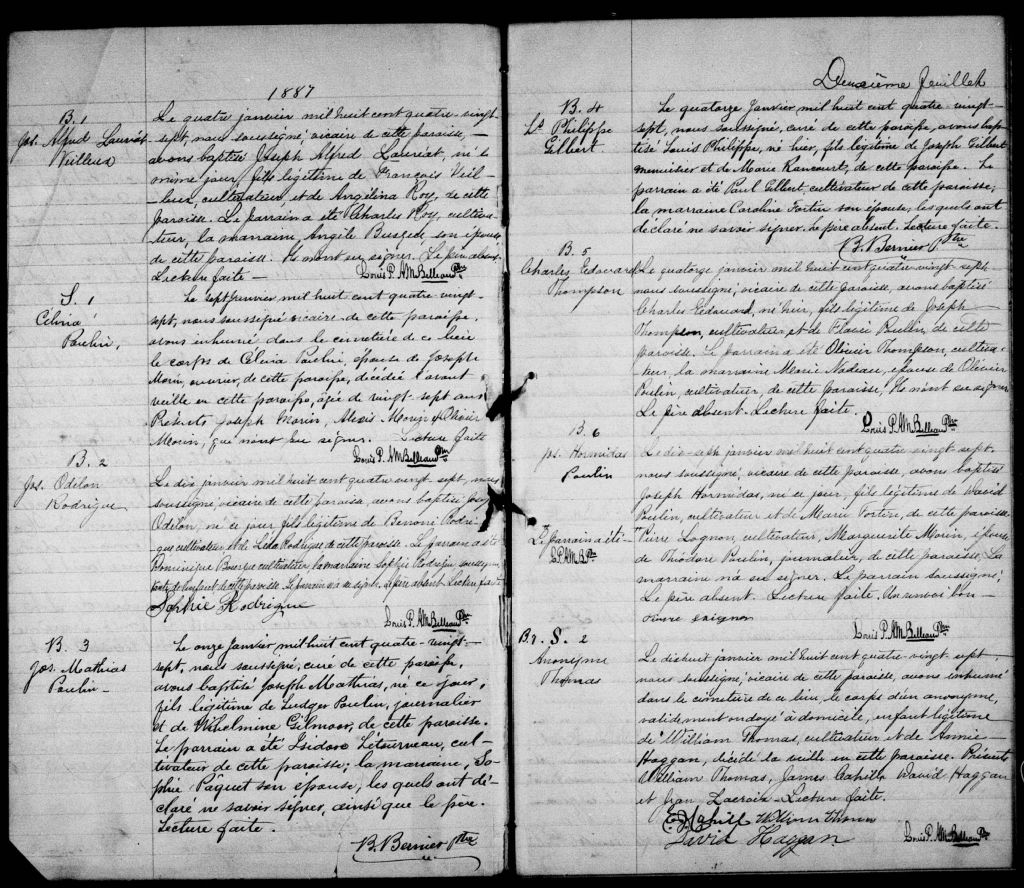 1887
B. 1
Jos. Alfred Lauréat
Veilleux
Le quatre janvier mil huit cent quatre-vingt-
sept, nous soussigné, vicaire de cette paroisse,
avons baptisé Joseph Alfred Lauréat, né le
même jour, fils légitime de François Veil-
leux, cultivateur, et de Angélina Roy, de cette
paroisse. Le parrain a été Charles Roy, cultiva-
teur, la marraine, Angèle Busque son épouse
de cette paroisse. Ils n'ont su signer. Le père absent.
Lecture faite
Louis P. A. M. Belleau Ptre
S. 1
Célina
Poulin,
Le sept janvier mil huit cent quatre vingt-
sept, nous soussigné vicaire de cette paroisse,
avons inhumé dans le cimetière de ce lieu
le corps de Célina Poulin, épouse de Joseph
Morin, ouvrier, de cette paroisse, décédée l'avant
veille en cette paroisse, agée de vingt-sept ans
Présents Joseph Morin, Alexis Morin & Olivier
Morin, qui n'ont su signer. Lecture faite
Louis P. A. M. Belleau Ptre
B. 2
Jos. Odilon
Rodrigue
Le dix janvier mil huit cent quatre vingt sept, nous
soussigné vicaire de cette paroisse, avons baptisé Joseph
Odilon, né ce jour, fils légitime de Benoni Rodri-
gue cultivateur et de Léda Rodrigue de cette paroisse. Le parrain a été
Dominique Bourque cultivateur, la marraine Sophie Rodrigue soussignée,
tante de l'enfant de cette paroisse. Le parrain n'a su signer. Le père absent. Lecture faite
Sophie Rodrigue
Louis P. A. M. Belleau Ptre
B. 3
Jos. Mathias
Poulin
Le onze janvier mil huit cent quatre-vingt-
sept, nous soussigné, curé de cette paroisse,
avons baptisé Joseph Mathias, né ce jour,
fils légitime de Ludger Poulin, journalier
et de Wilhelmine Gilmoor, de cette paroisse.
Le parrain a été Isidore Létourneau, cul-
tivateur de cette paroisse; la marraine, So-
phie Pâquet son épouse; les quels ont dé-
claré ne savoir signer, ainsi que le père.
Lecture faite.
B. Bernier Ptre
Deuxième feuillet
B. 4
Ls Philippe
Gilbert
Le quatorze janvier mil huit cent quatre vingt-
sept, nous soussigné, curé de cette paroisse, avons bap-
tisé Louis Philippe, né hier, fils légitime de Joseph Gilbert
menuisier et de Marie Rancourt, de cette paroisse. Le
parrain a été Paul Gilbert cultivateur de cette paroisse;
la marraine Caroline Fortin son épouse, les quels ont
déclaré ne savoir signer. Le père absent. Lecture faite.
B. Bernier Ptre
B. 5
Charles Edouard
Thompson
Le quatorze janvier mil huit cent quatre-vingt sept
nous soussigné, vicaire de cette paroisse, avons baptisé
Charles Edouard, né hier, fils légitime de Joseph
Thompson, cultivateur et de Flavie Poulin, de cette
paroisse. Le parrain a été Olivier Thompson, cultiva-
teur, la marraine Marie Nadeau, épouse de Olivier
Poulin, cultivateur, de cette paroisse, Ils n'ont su signer
Le père absent. Lecture faite.
Louis P. A. M. Belleau Ptre
B. 6
Jos. Hormidas
Poulin
Le dix-sept janvier mil huit cent quatre vingt sept,
nous soussigné, vicaire de cette paroisse, avons baptisé
Joseph Hormidas, né ce jour, fils légitime de David
Poulin, cultivateur et de Marie Fortier, de cette paroisse
Le parrain a été
L. P. A. M. B. Ptre
Pierre Lognon, cultivateur, Marguerite Morin, épouse
de Théodore Poulin, journalier, de cette paroisse. La
marraine n'a su signer. Le parrain soussigné,
Le père absent. Lecture faite. Un renvoi bon
Louis P. A. M. Belleau Ptre
S. 2
Anonyme
Thomas
Le dix huit janvier mil huit cent quatre-vingt sept
nous soussigné, vicaire de cette paroisse, avons inhumé
dans le cimetière de ce lieu, le corps d'un anonyme,
validement ondoyé à domicile, enfant légitime
de William Thomas, cultivateur et de Annie
Haggan, décédé la veille en cette paroisse. Présents
William Thomas, James Cahill, David Haggan
et Jean Lacroix. Lecture faite.
William Thomas
David Haggan
Louis P. A. M. Belleau Ptre